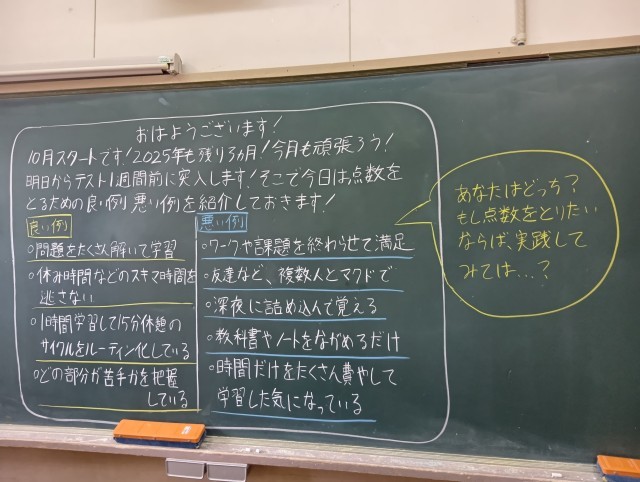 おはようございます!
10月スタートです!2025年も残り3ヵ月!今月も頑張ろう!
明日からテスト1週間前に突入します!そこで今日は点数を
とるための良い例悪い例を紹介しておきます!
良い例
○問題をたくさん解いて学習
○休み時間などのスキマ時間を
逃さない
○1時間学習して15分休憩の
サイクルをルーティン化している
○どの部分が苦手かを把握
している
悪い例
○ワークや課題を終わらせて満足
○友達など、複数人とマクドで
○深夜に詰め込んで覚える
○教科書やノートをながめるだけ
○時間だけをたくさん費やして
学習した気になっている
あなたはどっち?
もし点数をとりたい
ならば、実践して
みては…?